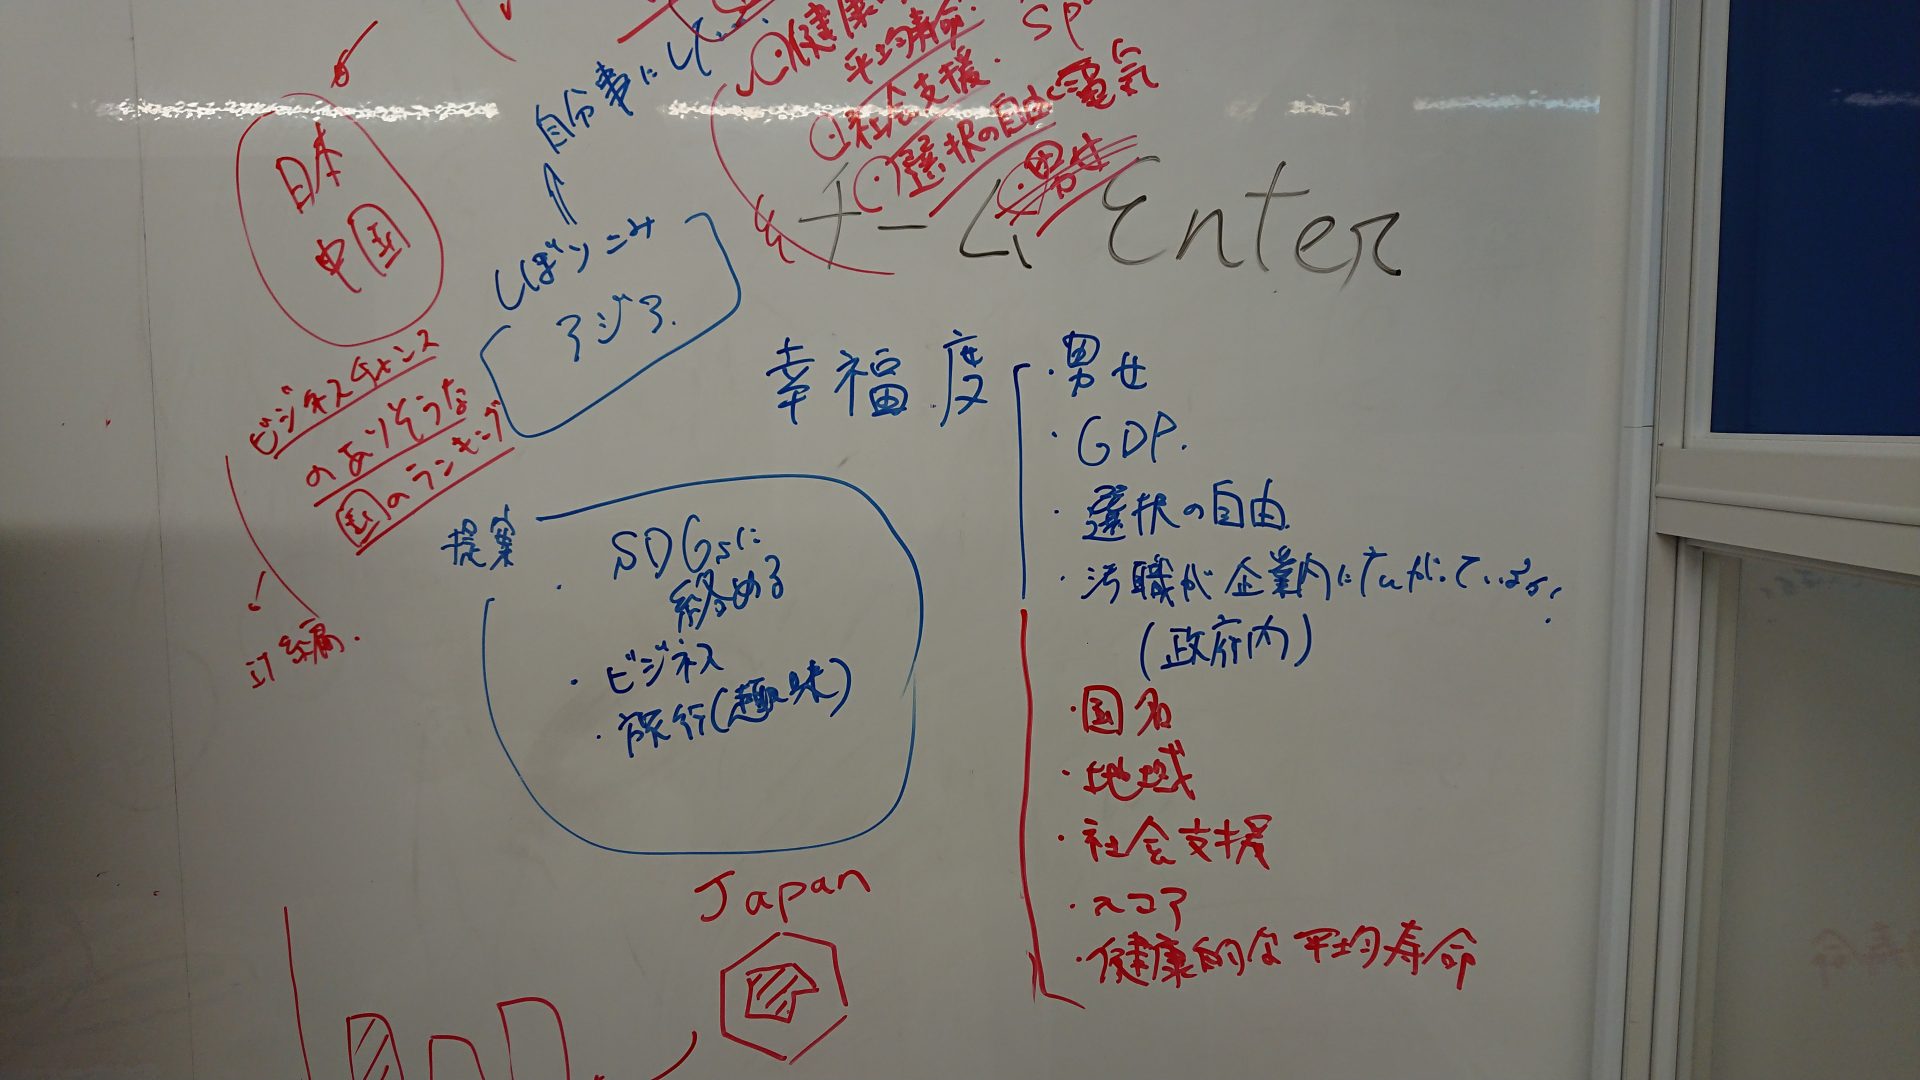 自分事に
健康
平均寿命
・社会支援.
・選択の自由
電気
・男女
sp
日本
中国
チーム Enter
しぼりこみ
アジア.
ビジネスチャンス
のありそうな
国のランキング
幸福度
・男女
・GDP.
・選択の自由.
・汚職が企業内に広がっているか.
(政府内)
・国名
・地域
・社会支援
・スコア
・健康的な平均寿命
提案
・SDGsに
絡める
・ビジネス
・旅行(趣味)
Japan